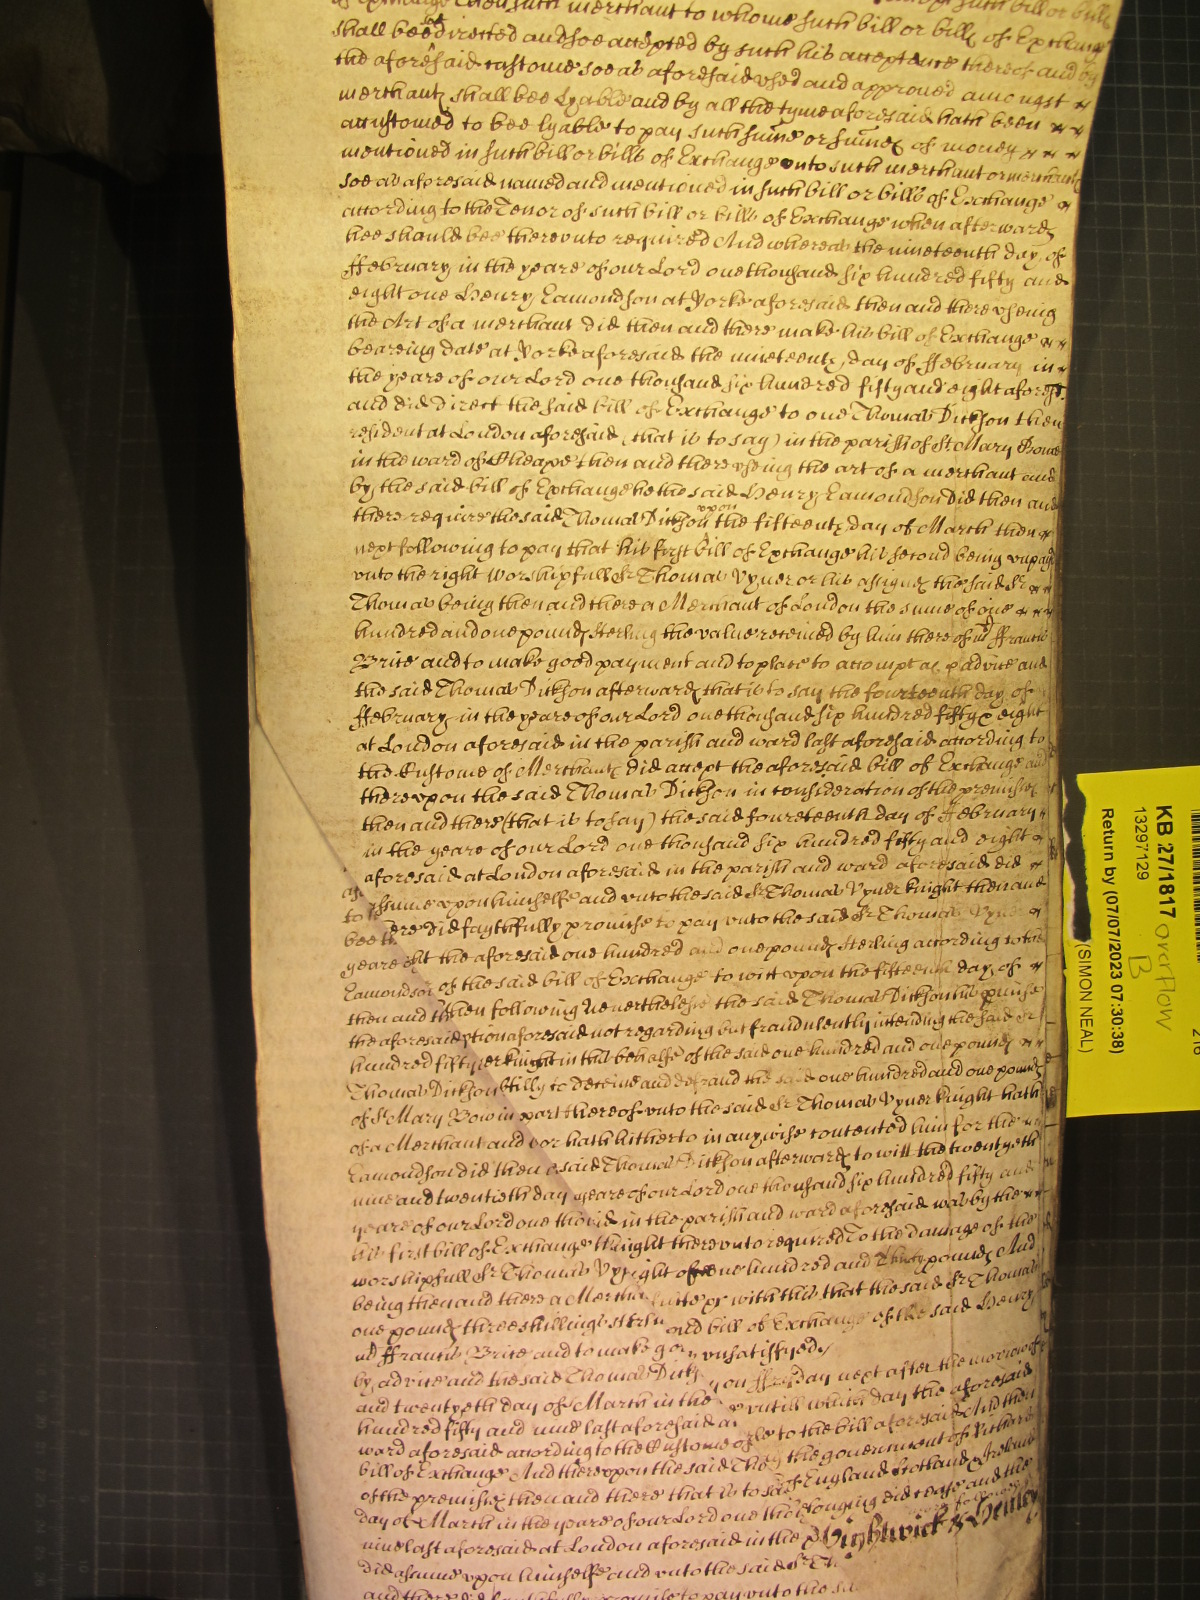 of Exchange Then such merchant to whome such bill or bills of Exchange
shall bee soe directed and soe accepted by such his acceptance thereof and by
the aforesaid custome soe as aforesaid vsed and approved amongst
merchantes shall bee Lyable and by all the tyme aforesaid hath been
accustomed to bee lyable to pay such sume or sumes of money
mentioned in such bill or bills of Exchange vnto such merchant or merchants
soe as aforesaid named and mentioned in such bill or bills of Exchange
according to the Tenor of such bill or bills of Exchange when afterwardes
hee should bee therevnto required And whereas the nineteenth day of
ffebruary in the yeare of our Lord one thousand six hundred fifty and
eight one Henry Eamondson at Yorke aforesaid then and there vseing
the Art of a merchant did then and there make his bill of Exchange
beareing date at Yorke aforesaid the nineteenth day of ffebruary in
the yeare of our Lord one thousand six hundred fifty and eight aforesd
and did direct the said bill of Exchange to one Thomas Dickson then
resident at London aforesaid (that is to say) in the parish of St Mary Bowe
in the ward of Cheape then and there vseing the art of a merchant and
by the said bill of Exchange he the said Henry Eamondson did then and
there require the said Thomas Dickson vpon the fifteenth day of March then
next following to pay that his first bill of Exchange his second being vnpaid
vnto the right Worshipfull Sr Thomas Vyner or his assignes the said Sr
Thomas being then and there a Merchant of London the sume of one
hundred and one poundes Sterling the value received by him there of mr ffrancis
Brice and to make good payment and to place to accompt as p advice and
the said Thomas Dickson afterwardes that is to say the fourteenth day of
ffebruary in the yeare of our Lord one thousand six hundred fifty & eight
at London aforesaid in the parish and ward last aforesaid according to
the Custome of Merchantes did accept the aforesaid bill of Exchange and
therevpon the said Thomas Dickson in consideration of the premisses
then and there (that is to say) the said foureteenth day of ffebruary
in the yeare of our Lord one thousand six hundred fifty and eight
aforesaid at London aforesaid in the parish and ward aforesaid did
assume vpon himselfe and vnto the said Sr Thomas Vyner knight then and
there did faythfully promise to pay vnto the said Sr Thomas Vyner
the aforesaid one hundred and one poundes Sterling according to the
of the said bill of Exchange to witt vpon the fifteenth day of
then following Neverthelesse the said Thomas Dickson his promise
aforesaid not regarding but fraudulently intending the said Sr
knight in this behalfe of the said one hundred and one poundes
to deceive and defraud the said one hundred and one poundes
part thereof vnto the said Sr Thomas Vyner knight hath
or hath hitherto in anywise contented him for the
said Thomas Dickson afterwardes to witt the twentyeth
yeare of our Lord one thousand six hundred fifty and
in the parish and ward aforesaid was by the
knight therevnto required To the damage of the
one hundred and Thirty poundes And
with this that the said Sr Thomas
bill of Exchange of the said Henry
vnsatisfyed
on ffryday next after the morrow of
vntill which day the aforesaid
to the bill aforesaid And then
the government of Richard
of England Scotland & Ireland
longing did cease and the
Highwick & Henley
Eamondson
then and
the aforesaid
hundred fifty
Thomas Dickson
of St Mary Bow in
of a Merchant and
Eamondson did then
nine and twentieth day
yeare of our Lord one
his first bill of Exchange
worshipfull Sr Thomas
being then and there a
one poundes three shillings
mr ffrancis Brice and to make
by advice and the said Thomas
and twentyeth day of March in the
hundred fifty and nine last aforesaid
ward aforesaid according to the Custome of
bill of Exchange And therevpon the said
of the premisses then and there that is to say
day of March in the yeare of our Lord one
nine last aforesaid at London aforesaid in the
did assume vpon himselfe and vnto the said Sr
and there did faithfully promise to pay vnto the
KB 27/1817 overflow
B
13297129
Return by (07/07/2023 07:30:38)
(SIMON NEAL)